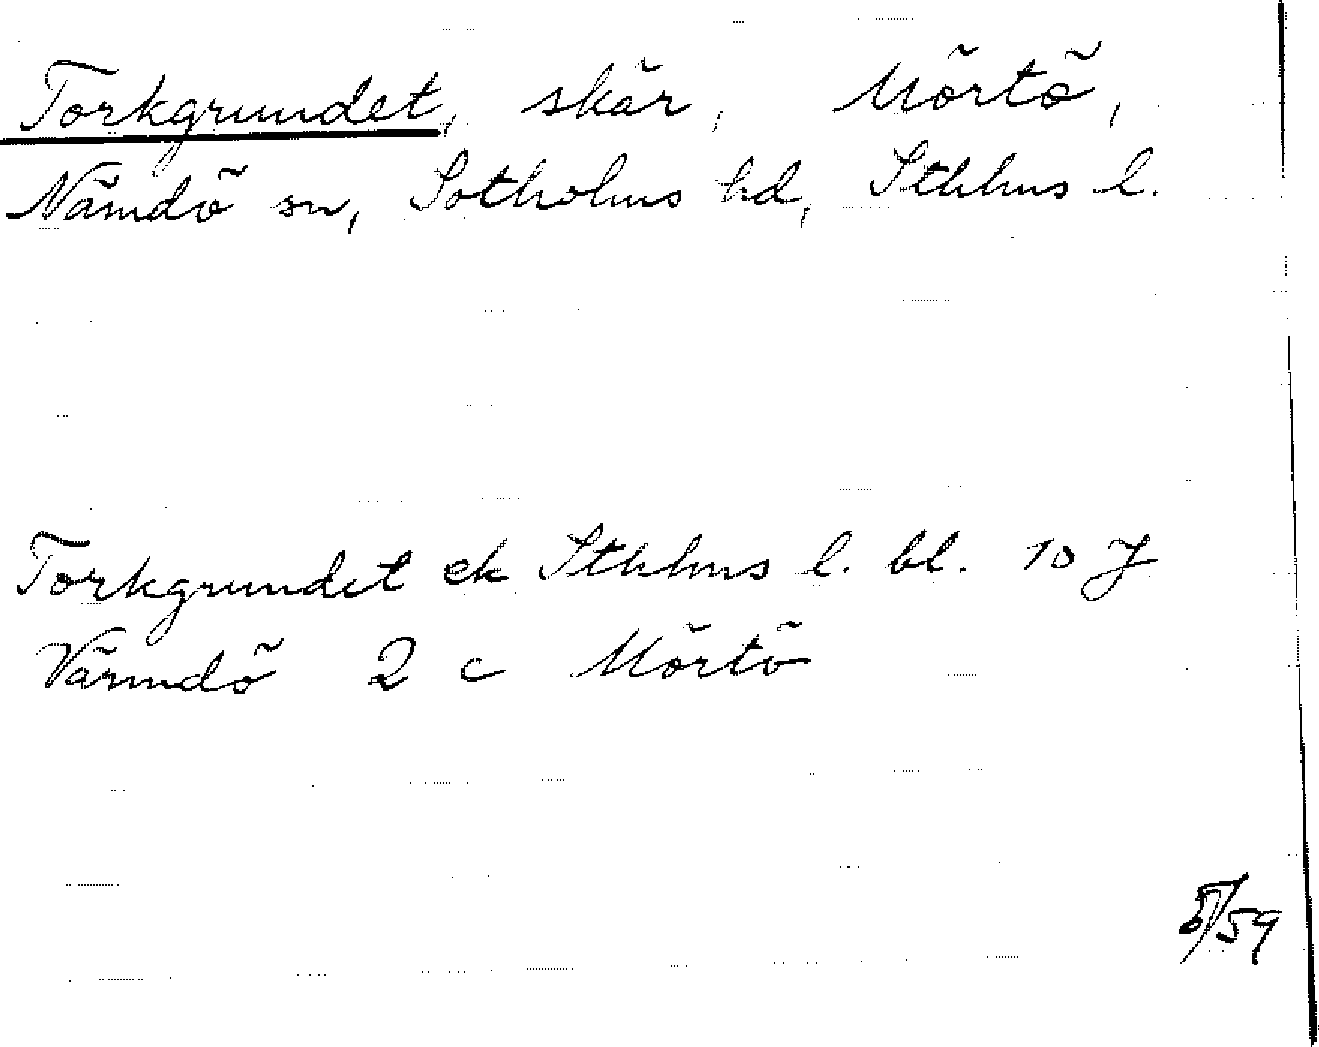 Torkgrundet, skär, Mörtö,
Nämdö sn, Sotholms hd, Sthlms l.
Torkgrundet ek Sthlms l. bl. 10 J
Värmdö 2 c Mörtö
/59